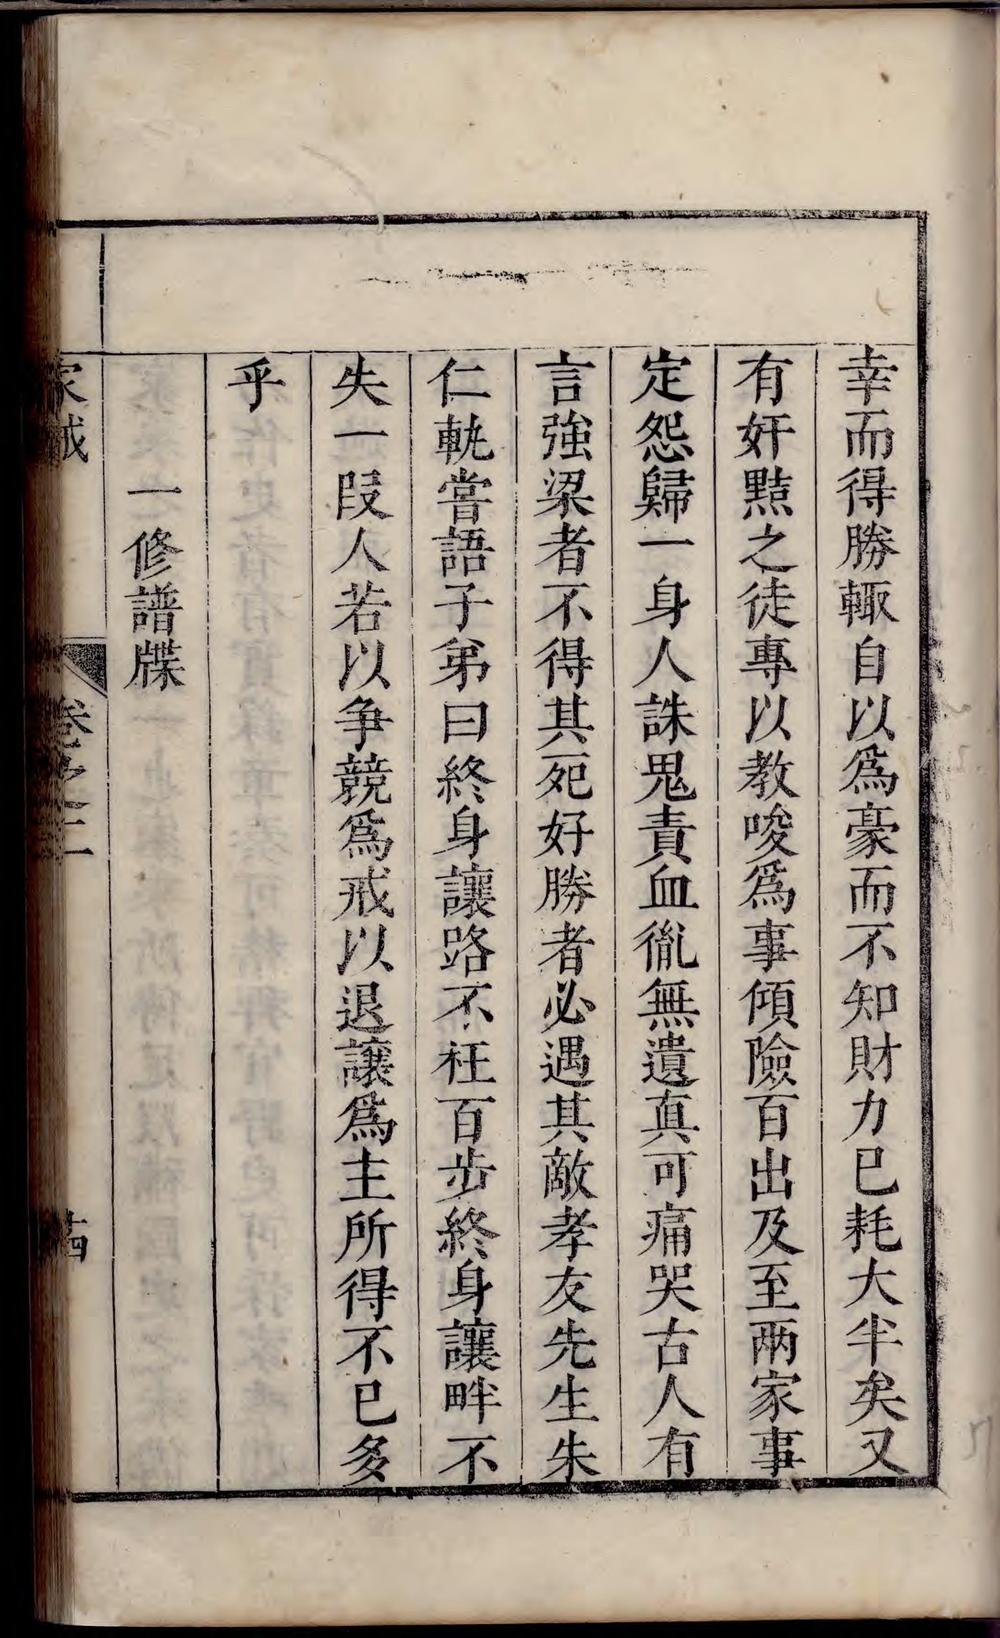 幸而得勝輙自以爲豪而不知財力已耗大半矣又
有奸黠之徒專以教唆爲事傾險百出及至兩家事
定怨歸一身人誅鬼責血胤無遺真可痛哭古人有
言強梁者不得其死好勝者必遇其敵孝友先生朱
仁軌嘗語子弟曰終身讓路不枉百步終身讓畔不
失一段人若以争競爲戒以退讓爲主所得不已多
乎
一修譜牒
家誡
卷之二
十四